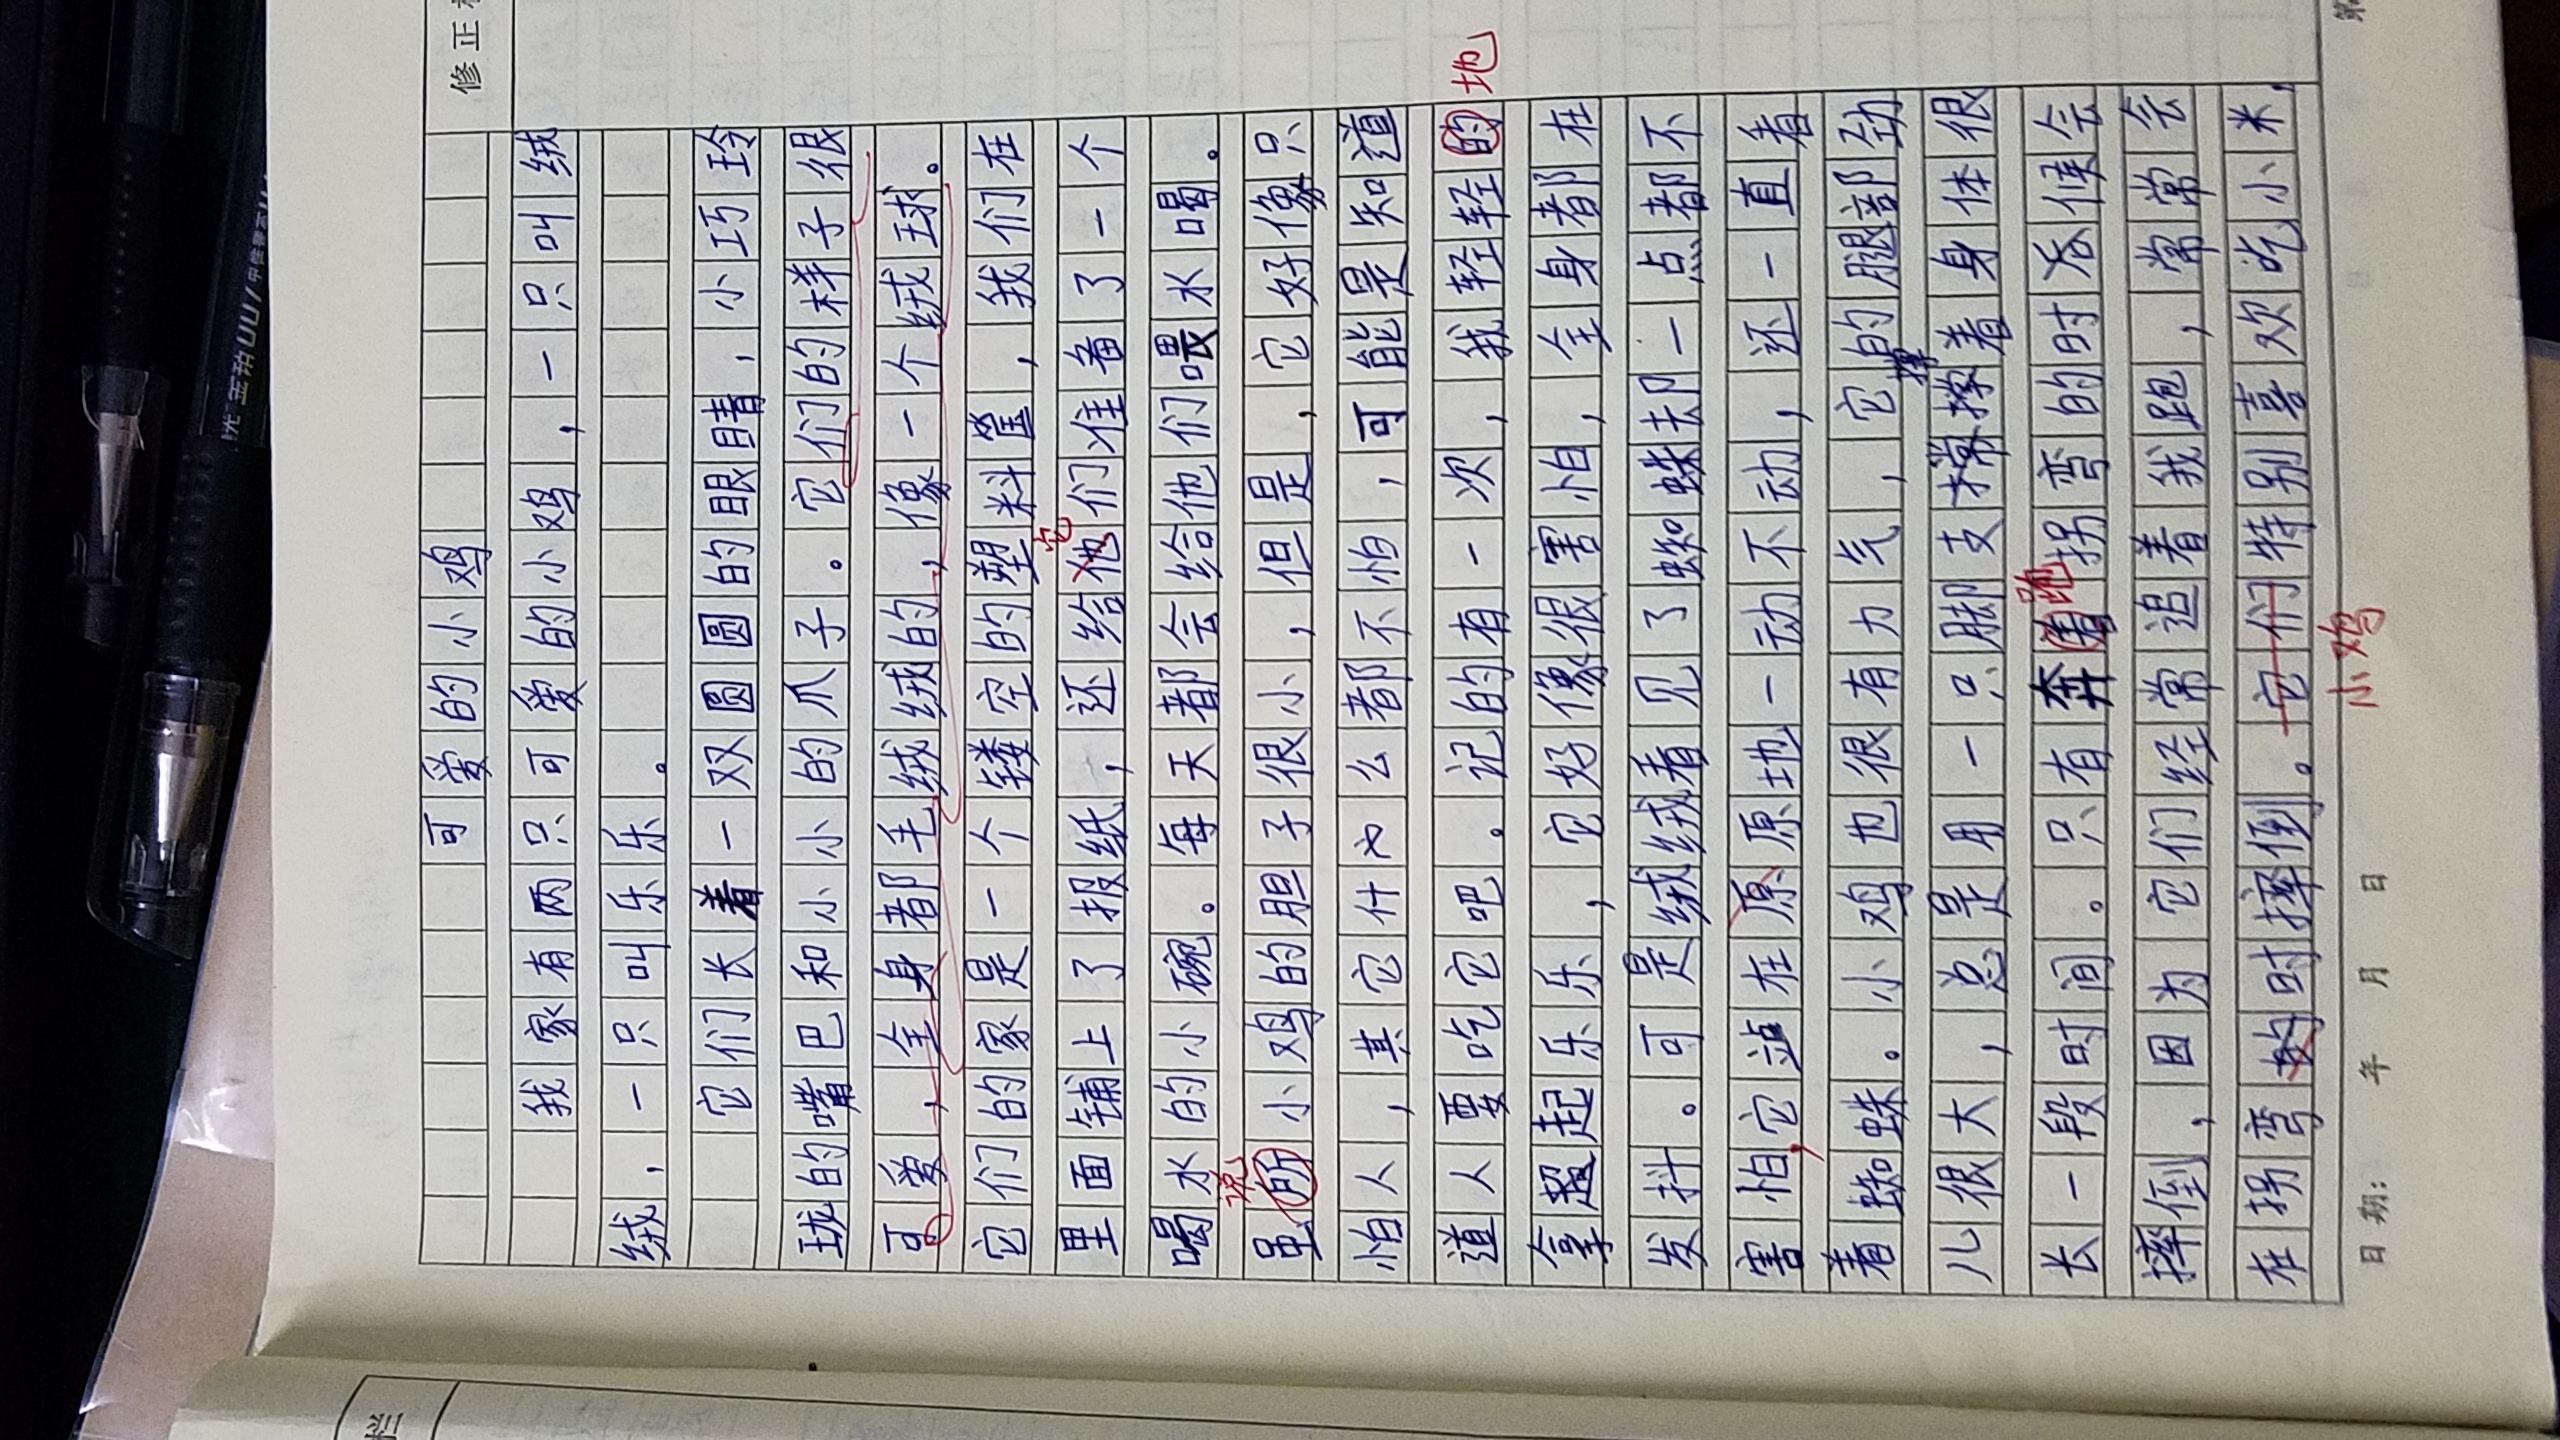 修正
可爱的小鸡
我家有两只可爱的小鸡，一只叫绒
绒，一只叫乐乐。
它们长着一双圆圆的眼睛，小巧玲
珑的嘴巴和小小的爪子。它们的样子很
可爱，全身都毛绒绒的，像一个绒球。
它们的家是一个镂空的塑料筐，我们在
它
里面铺上了报纸，还给他们准备了一个
喝水的小碗。每天都会给他们喂水喝。
说
虽所小鸡的胆子很小，但是，它好像只
怕人，其它什么都不怕，可能是知道
道人要吃它吧。记的有一次，我轻轻的
地
拿超起乐乐，它好像很害怕，全身都在
发抖。可是绒绒看见了蜘蛛却一点都不
害怕，它站在原原地一动不动，还一直看
着蜘蛛。小鸡也很有力气，它的腿部劲
儿很大，总是用一只脚支撑着身体很
长一段时间。只有奔着拐弯的时候会
跑
摔倒，因为它们经常追着我跑，常常会
在拐弯的时摔倒。它们特别喜欢吃小米，
小鸡
日期： 年 月 日
第
栏